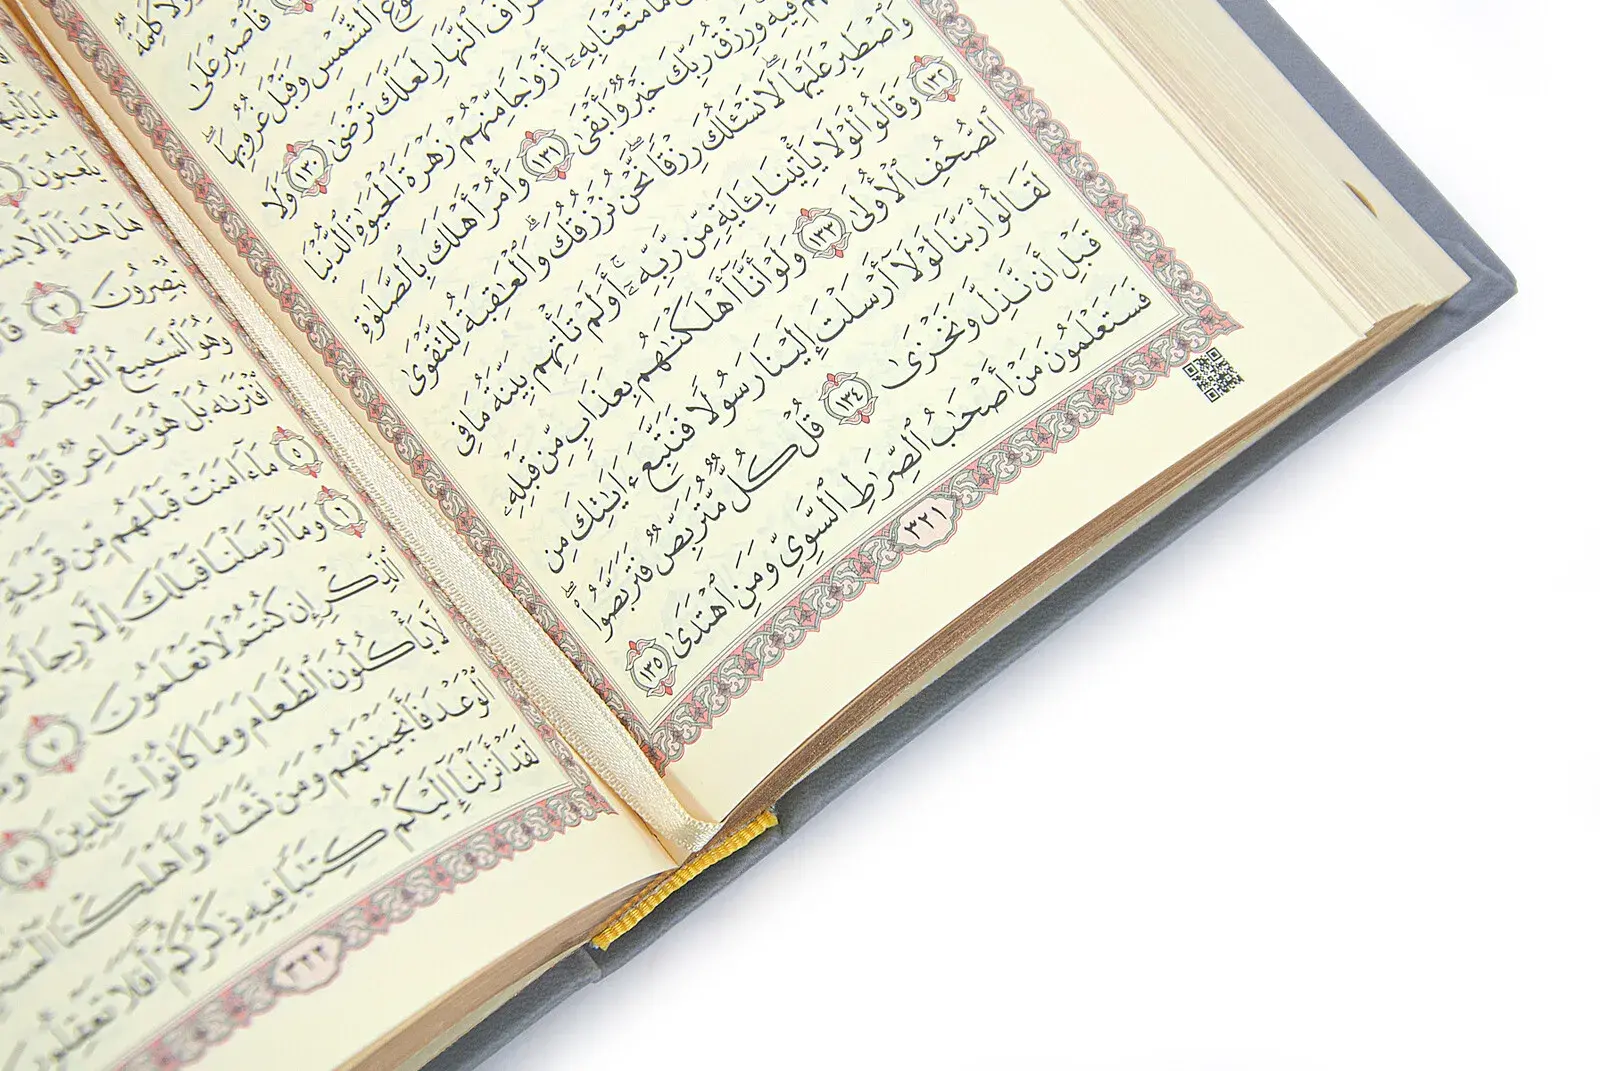 كَلِمَةٌ
فَٱصْبِرْ عَلَىٰ
ٱلشَّمْسِ وَقَبْلَ غُرُوبِهَا ۖ
ٱلنَّهَارِ لَعَلَّكَ تَرْضَىٰ ١٣٠ وَلَا
مَا مَتَّعْنَا بِهِۦٓ أَزْوَٰجًا مِّنْهُمْ زَهْرَةَ ٱلْحَيَوٰةِ ٱلدُّنْيَا
فِيهِ ۚ وَرِزْقُ رَبِّكَ خَيْرٌ وَأَبْقَىٰ ١٣١ وَأْمُرْ أَهْلَكَ بِٱلصَّلَوٰةِ
وَٱصْطَبِرْ عَلَيْهَا ۖ لَا نَسْـَٔلُكَ رِزْقًا ۖ نَّحْنُ نَرْزُقُكَ ۗ وَٱلْعَـٰقِبَةُ لِلتَّقْوَىٰ
١٣٢ وَقَالُوا۟ لَوْلَا يَأْتِينَا بِـَٔايَةٍ مِّن رَّبِّهِۦٓ ۚ أَوَلَمْ تَأْتِهِم بَيِّنَةُ مَا فِى
ٱلصُّحُفِ ٱلْأُولَىٰ ١٣٣ وَلَوْ أَنَّآ أَهْلَكْنَـٰهُم بِعَذَابٍ مِّن قَبْلِهِۦ
لَقَالُوا۟ رَبَّنَا لَوْلَآ أَرْسَلْتَ إِلَيْنَا رَسُولًا فَنَتَّبِعَ ءَايَـٰتِكَ مِن
قَبْلِ أَن نَّذِلَّ وَنَخْزَىٰ ١٣٤ قُلْ كُلٌّ مُّتَرَبِّصٌ فَتَرَبَّصُوا۟ ۖ
فَسَتَعْلَمُونَ مَنْ أَصْحَـٰبُ ٱلصِّرَٰطِ ٱلسَّوِىِّ وَمَنِ ٱهْتَدَىٰ ١٣٥
٣٢١
مَا يَأْتِيهِم
يَلْعَبُونَ
هَلْ هَـٰذَآ إِلَّا
تُبْصِرُونَ ٣
وَهُوَ ٱلسَّمِيعُ ٱلْعَلِيمُ
ٱفْتَرَىٰهُ بَلْ هُوَ شَاعِرٌ
٥ مَآ ءَامَنَتْ قَبْلَهُم مِّن قَرْيَةٍ
٦ وَمَآ أَرْسَلْنَا قَبْلَكَ إِلَّا رِجَالًا
ٱلذِّكْرِ إِن كُنتُمْ لَا تَعْلَمُونَ ٧
لَّا يَأْكُلُونَ ٱلطَّعَامَ وَمَا كَانُوا۟ خَـٰلِدِينَ ٨
ٱلْوَعْدَ فَأَنجَيْنَـٰهُمْ وَمَن نَّشَآءُ وَأَهْلَكْنَا
لَقَدْ أَنزَلْنَآ إِلَيْكُمْ كِتَـٰبًا فِيهِ ذِكْرُكُمْ ۖ أَفَلَا تَعْقِلُونَ
٣٢٢